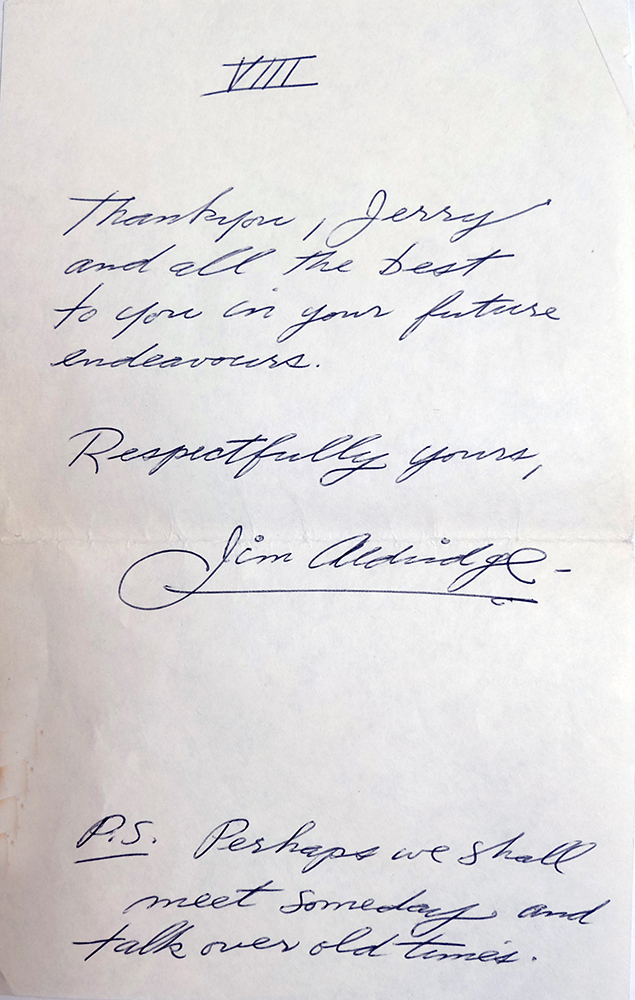 VIII
Thankyou, Jerry
and all the best
to you in your future
endeavours.
Respectfully yours,
Jim Aldridge -
P.S. Perhaps we shall
meet someday and
talk over old times.